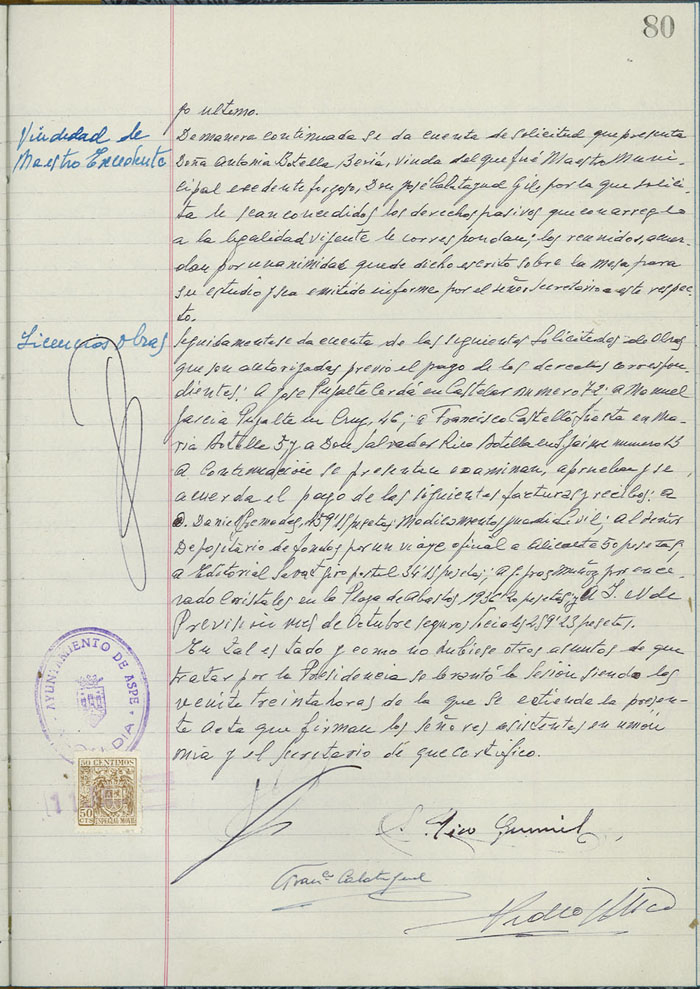 80
jo ultimo.
Viudedad de
Maestro Excedente
De manera continuada se da cuenta de solicitud que presenta
Doña Antonia Botella Beriá, viuda del que fué Maestro Muni-
cipal exedente forzoso, Don José Calatayud Gil, por la que solici-
ta le sean concedidos los derechos pasivos que con arreglo
a la legalidad vigente le correspondan; los reunidos, acuer-
dan por unanimidad quede dicho escrito sobre la mesa para
su estudio y sea emitido informe por el señor Secretario a este respec-
to.
Licencias obras
Seguidamente se da cuenta de las siguientes Solicitudes de Obras
que son autorizadas previo el pago de los derechos correspon-
dientes: A Jose Pujalte Cerdá en Castelar numero 72; a Manuel
Garcia Pujalte en Cruz, 46; a Francisco Castelló en Ma-
ria Botella 5 y a Don Salvador Rico Botella en S. Jaime numero 23
A continuación se presentan examinan, aprueban y se
acuerda el pago de las siguientes facturas y recibos: a
D. Daniel 159'15 pesetas Medicamentos guardia Civil; Al Señor
Depositario de fondos por un viaje oficial a Alicante 50 pesetas;
a Editorial Salvat giro postal 34'15 pesetas; a Muñoz por ence-
rado Cristales en la Plaza de Abastos 1936'20 pesetas y A I. N de
Prevision mes de Octubre seguros sociales 259'23 pesetas.
En tal estado y como no hubiese otros asuntos de que
tratar por la Presidencia se levantó la sesión siendo las
veinte treinta horas de la que se extiende la presen-
te acta que firman los señores asistentes en unión
mia y el Secretario de que certifico.
AYUNTAMIENTO DE ASPE
ALCALDIA
50 CENTIMOS
50
CTS
ESPECIAL MOVIL
Franco Calatayud
Pedro